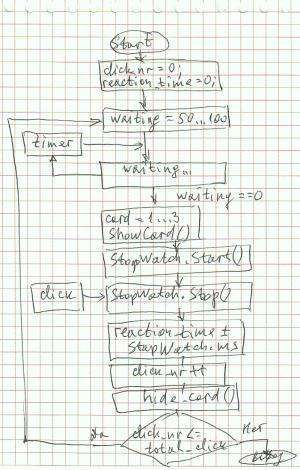 Start
click_nr = 0;
reaction_time = 0;
waiting = 50...100
timer
waiting...
waiting == 0
card = 1...3
ShowCard()
StopWatch.Start()
click
StopWatch.Stop()
reaction_time +
StopWatch.ms
click_nr ++
hide_card()
Да
click_nr <=
total_click
Нет